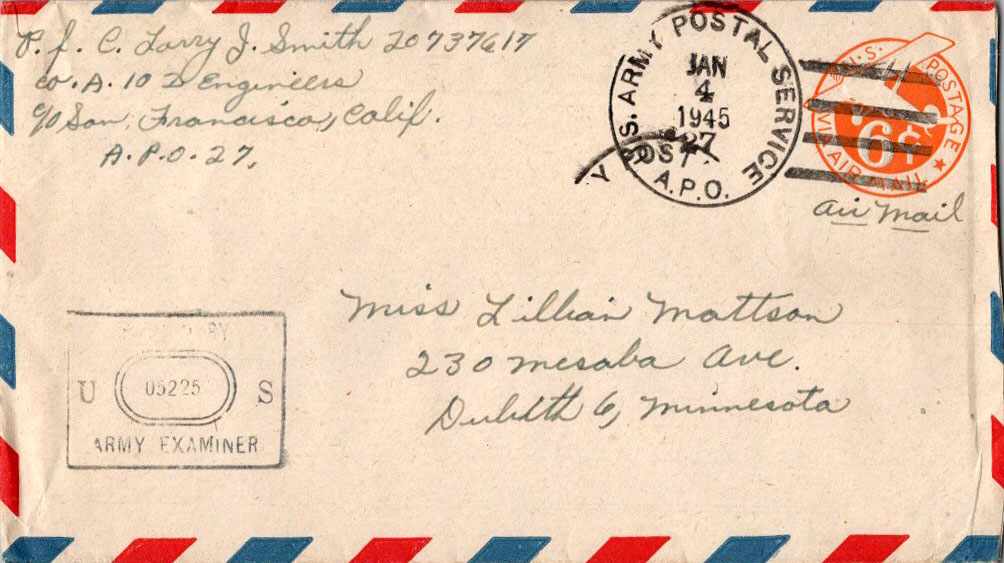 P. f. C. Larry J. Smith 20737617
co. A. 10 D Engineers
c/o San Francisco, Calif.
A.P.O. 27,
U.S. ARMY POSTAL SERVICE
JAN
4
1945
27
A.P.O.
Y
POST
U.S. POSTAGE
6¢
VIA AIR MAIL
Air Mail
Miss Lillian Mattson
230 Mesaba Ave.
Duluth 6, Minnesota
BY
U 05225 S
ARMY EXAMINER